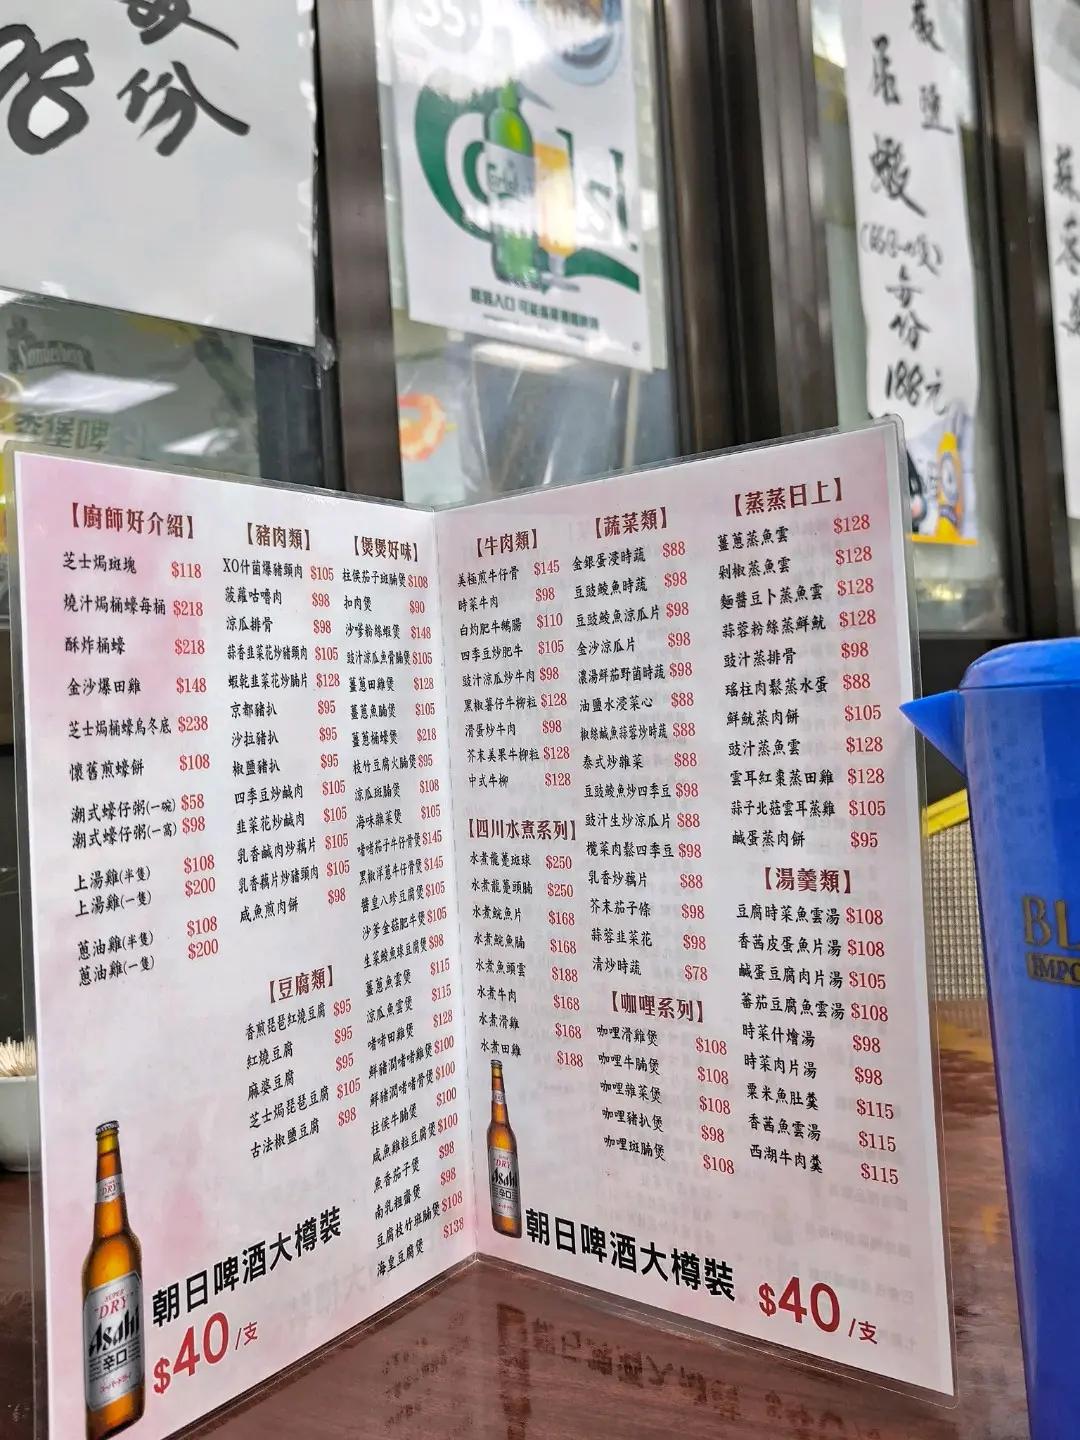 份
35.
Carlsberg
香堡啤
蝦
每份
188元
【廚師好介紹】
芝士焗斑塊 $118
燒汁焗桶蠔每桶 $218
酥炸桶蠔 $218
金沙爆田雞 $148
芝士焗桶蠔烏冬底 $238
懷舊煎蠔餅 $108
潮式蠔仔粥(一碗) $58
潮式蠔仔粥(一窩) $98
上湯雞(半隻) $108
上湯雞(一隻) $200
蔥油雞(半隻) $108
蔥油雞(一隻) $200
【豬肉類】
XO什菌爆豬頸肉 $105
菠蘿咕嚕肉 $98
涼瓜排骨 $98
蒜香韭菜花炒豬頸肉 $105
蝦乾韭菜花炒腩片 $128
京都豬扒 $95
沙拉豬扒 $95
椒鹽豬扒 $95
四季豆炒鹹肉 $105
韭菜花炒鹹肉 $105
乳香鹹肉炒藕片 $105
乳香藕片炒豬頸肉 $105
咸魚煎肉餅 $98
【豆腐類】
香煎琵琶紅燒豆腐 $95
紅燒豆腐 $95
麻婆豆腐 $95
芝士焗琵琶豆腐 $105
古法椒鹽豆腐 $98
【煲煲好味】
柱侯茄子斑腩煲 $108
扣肉煲 $90
沙嗲粉絲蝦煲 $148
豉汁涼瓜魚骨腩煲 $105
薑蔥田雞煲 $128
薑蔥魚腩煲 $105
薑蔥桶蠔煲 $218
枝竹豆腐火腩煲 $95
涼瓜斑腩煲 $108
海味雜菜煲 $105
啫啫茄子牛仔骨煲 $145
黑椒洋蔥牛仔骨煲 $145
醬皇八珍豆腐煲 $105
沙爹金菇肥牛煲 $105
生菜鯪魚球豆腐煲 $98
薑蔥魚雲煲 $115
涼瓜魚雲煲 $115
啫啫田雞煲 $128
鮮豬潤啫啫雞煲 $100
鮮豬潤啫啫骨煲 $100
柱侯牛腩煲 $100
咸魚雞粒豆腐煲 $100
魚香茄子煲 $98
南乳粗齋煲 $98
豆腐枝竹班腩煲 $108
海皇豆腐煲 $138
SUPER "DRY"
Asahi
辛口
朝日啤酒大樽裝
$40/支
【牛肉類】
美極煎牛仔骨 $145
時菜牛肉 $98
白灼肥牛鵝腸 $110
四季豆炒肥牛 $105
豉汁涼瓜炒牛肉 $98
黑椒薯仔牛柳粒 $128
滑蛋炒牛肉 $98
芥末美果牛柳粒 $128
中式牛柳 $128
【四川水煮系列】
水煮龍躉斑球 $250
水煮龍躉頭腩 $250
水煮鯇魚片 $168
水煮鯇魚腩 $168
水煮魚頭雲 $188
水煮牛肉 $168
水煮滑雞 $168
水煮田雞 $188
【蔬菜類】
金銀蛋浸時蔬 $88
豆豉鯪魚時蔬 $98
豆豉鯪魚涼瓜片 $98
金沙涼瓜片 $98
濃湯鮮茄野菌時蔬 $98
油鹽水浸菜心 $88
椒絲鹹魚蒜蓉炒時蔬 $88
泰式炒雜菜 $88
豆豉鯪魚炒四季豆 $98
豉汁生炒涼瓜片 $88
欖菜肉鬆四季豆 $98
乳香炒藕片 $88
芥末茄子條 $98
蒜蓉韭菜花 $98
清炒時蔬 $78
【咖哩系列】
咖哩滑雞煲 $108
咖哩牛腩煲 $108
咖哩雜菜煲 $108
咖哩豬扒煲 $98
咖哩斑腩煲 $108
【蒸蒸日上】
薑蔥蒸魚雲 $128
剁椒蒸魚雲 $128
麵醬豆卜蒸魚雲 $128
蒜蓉粉絲蒸鮮魷 $128
豉汁蒸排骨 $98
瑤柱肉鬆蒸水蛋 $88
鮮魷蒸肉餅 $105
豉汁蒸魚雲 $128
雲耳紅棗蒸田雞 $128
蒜子北菇雲耳蒸雞 $105
鹹蛋蒸肉餅 $95
【湯羹類】
豆腐時菜魚雲湯 $108
香茜皮蛋魚片湯 $108
鹹蛋豆腐肉片湯 $105
蕃茄豆腐魚雲湯 $108
時菜什燴湯 $98
時菜肉片湯 $98
粟米魚肚羹 $115
香茜魚雲湯 $115
西湖牛肉羹 $115
Asahi
朝日啤酒大樽裝 $40/支
BL
IMPO